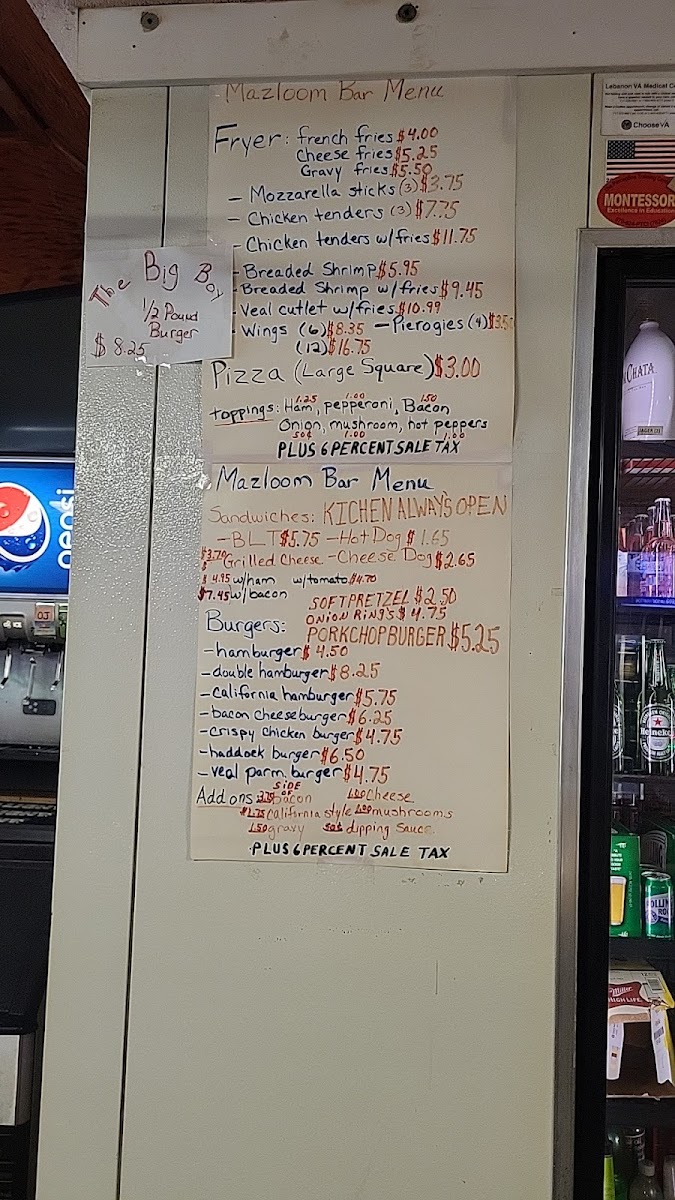 Mazloom Bar Menu
Fryer: french fries $4.00
Cheese fries $5.25
Gravy fries $5.50
- Mozzarella sticks (3) $3.75
- Chicken tenders (3) $7.75
- Chicken tenders w/fries $11.75
- Breaded Shrimp $5.95
- Breaded Shrimp w/fries $9.45
- Veal cutlet w/fries $10.99
- Wings (6) $8.35 - Pierogies (4) $3.5
(12) $16.75
Pizza (Large Square) $3.00
1.25 1.00 1.50
toppings: Ham, pepperoni, Bacon
Onion, mushroom, hot peppers
50¢ 1.00 1.00
PLUS 6 PERCENT SALE TAX
The Big Boy
1/2 Pound
Burger
$8.25
Mazloom Bar Menu
Sandwiches: KICHEN ALWAY'S OPEN
- BLT $5.75 - Hot Dog $1.65
$3.70 Grilled Cheese - Cheese Dog $2.65
$4.95 w/ham w/tomato $4.70
$7.45 w/bacon
SOFT PRETZEL $2.50
ONION RING'S $4.75
Burgers: PORKCHOP BURGER $5.25
- hamburger $4.50
- double hamburger $8.25
- California hamburger $5.75
- bacon cheeseburger $6.25
- crispy chicken burger $4.75
- haddock burger $6.50
- veal parm. burger $4.75
SIDE OF
Add ons: bacon 1.00 Cheese
$1.75 California style 1.00 mushrooms
1.50 gravy 50¢ dipping sauce
PLUS 6 PERCENT SALE TAX
pepsi
OJ
Lebanon VA Medical Ce
ChooseVA
MONTESSOR
Excellence in Education
CHATA
Heineken
ROLLIN
ROC
Miller
HIGH LIFE